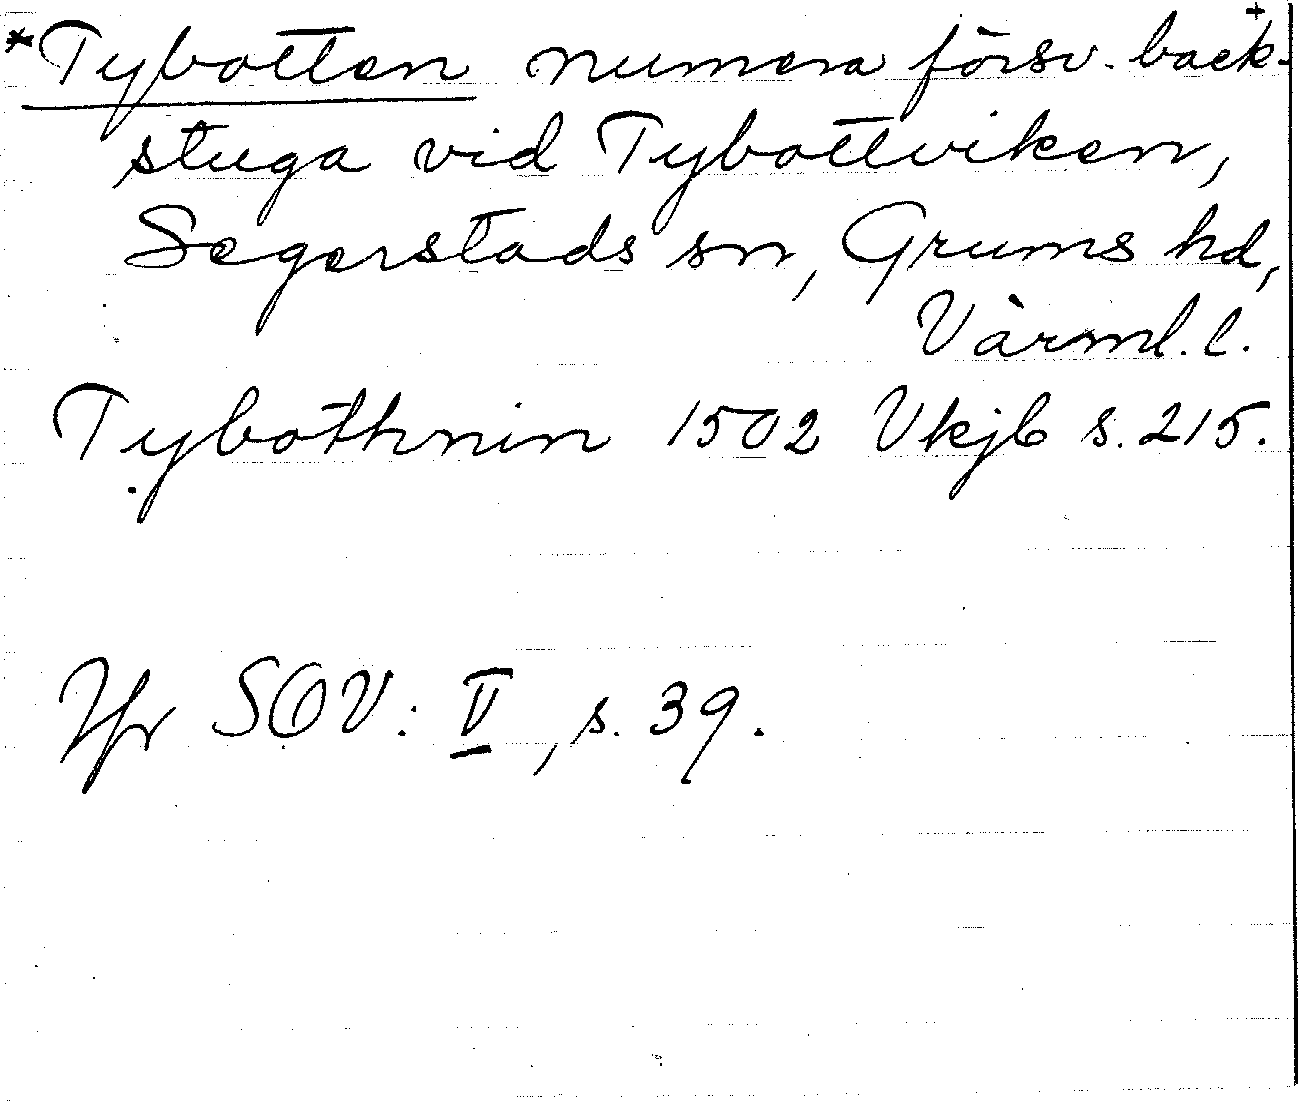 *Tybotten numera försv. back-
stuga vid Tybottviken,
Segerstads sn, Grums hd,
Värml. l.
Tybothnin 1502 Vkjb s. 215.
Jfr SOV: V, s. 39.